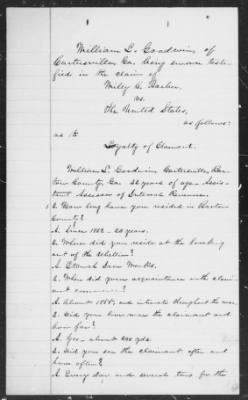 William L. Goodwin of
Cartersville Ga. being sworn testi-
fied in the claim of
Wiley C. Harben
vs.
The United States,
as follows:
as to
Loyalty of Claimant.
William L. Goodwin Cartersville, Bar-
tow County, Ga. years of age Assis-
tant Assessor of Internal Revenue.
Q. How long have you resided in Bartow
County?
A. Since 1852 - 20 years.
Q. Where did you reside at the break
out of the rebellion?
A. Etowah Iron Works.
Q. When did your acquaintance with claim
ant commence?
A. About 1855, and intimate throughout the war.
Q. Did you live near the claimant and
how far?
A. Yes - about yds.
Q. Did you see the claimant often and
how often?
A. Every day and several times for the